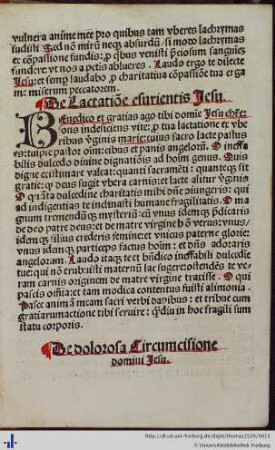 vulnera anime mee pro quibus tam vberes lachrymas
fudisti. Sed nō mirū neqȝ absurdū, si modo lachrymas
et cōpassione fundis: p̄ qbus venisti p̄ciosum sanguinē
fundere vt nos a petis ablueres. Laudo ergo te dilecte
Jesu: et semp laudabo p̱ charitatiua cōpassiōe tua erga
m: miserum peccatorem.
De Lactatiōe esurientis Jesu.
BEnedico et gratias ago tibi domie Jesu christe
fons indeficiens vite: p̱ tua lactatione ex vbe
ribus v̄ginis marie: cuius sacro lacte pastus
es: tu pie pastor oīm: cibus et panis angelorū. O ineffa
bilis dulcedo diuine dignatiōis ad hoīm genus. Quis
digne existimare valeat: quanti sacramēti: quantecȝ sit
gratie: qȝ deus sugit vbera carnis: et lacte alitur v̄ginis
O q̄ta dulcedine charitatis mihi deꝰ piungeris: qui
ad indigentias te inclinasti humane fragilitatis. O ma
gnum tremendūqȝ mysteriū: cū vnus idemqȝ p̄dicaris
de deo patre deus: et de matre virgine hō verus: vnus/
idemqȝ filius credēris femine: et vnicus paterne glorie:
vnus idemqȝ particeps factus hoīm: et dn̄s adoratis
angelorum. Laudo itaqȝ te et bn̄dico ineffabili dulcedie
tue: qui nō erubuisti maternū lac sugere: ostendēs te ve
ram carnis originem de matre virgine traxisse. O qui
pascis oīnia: et tam modica contentus fuisti alimonia.
Pasce animā meam sacri verbi dapibus: et tribue cum
gratiarumactione tibi seruire: q̄diu in hoc fragili sum
statu corporis.
De dolorosa Circumcisione
domini Jesu.
http://dl.ub.uni-freiburg.de/diglit/thomas1529/0013
© Universitätsbibliothek Freiburg